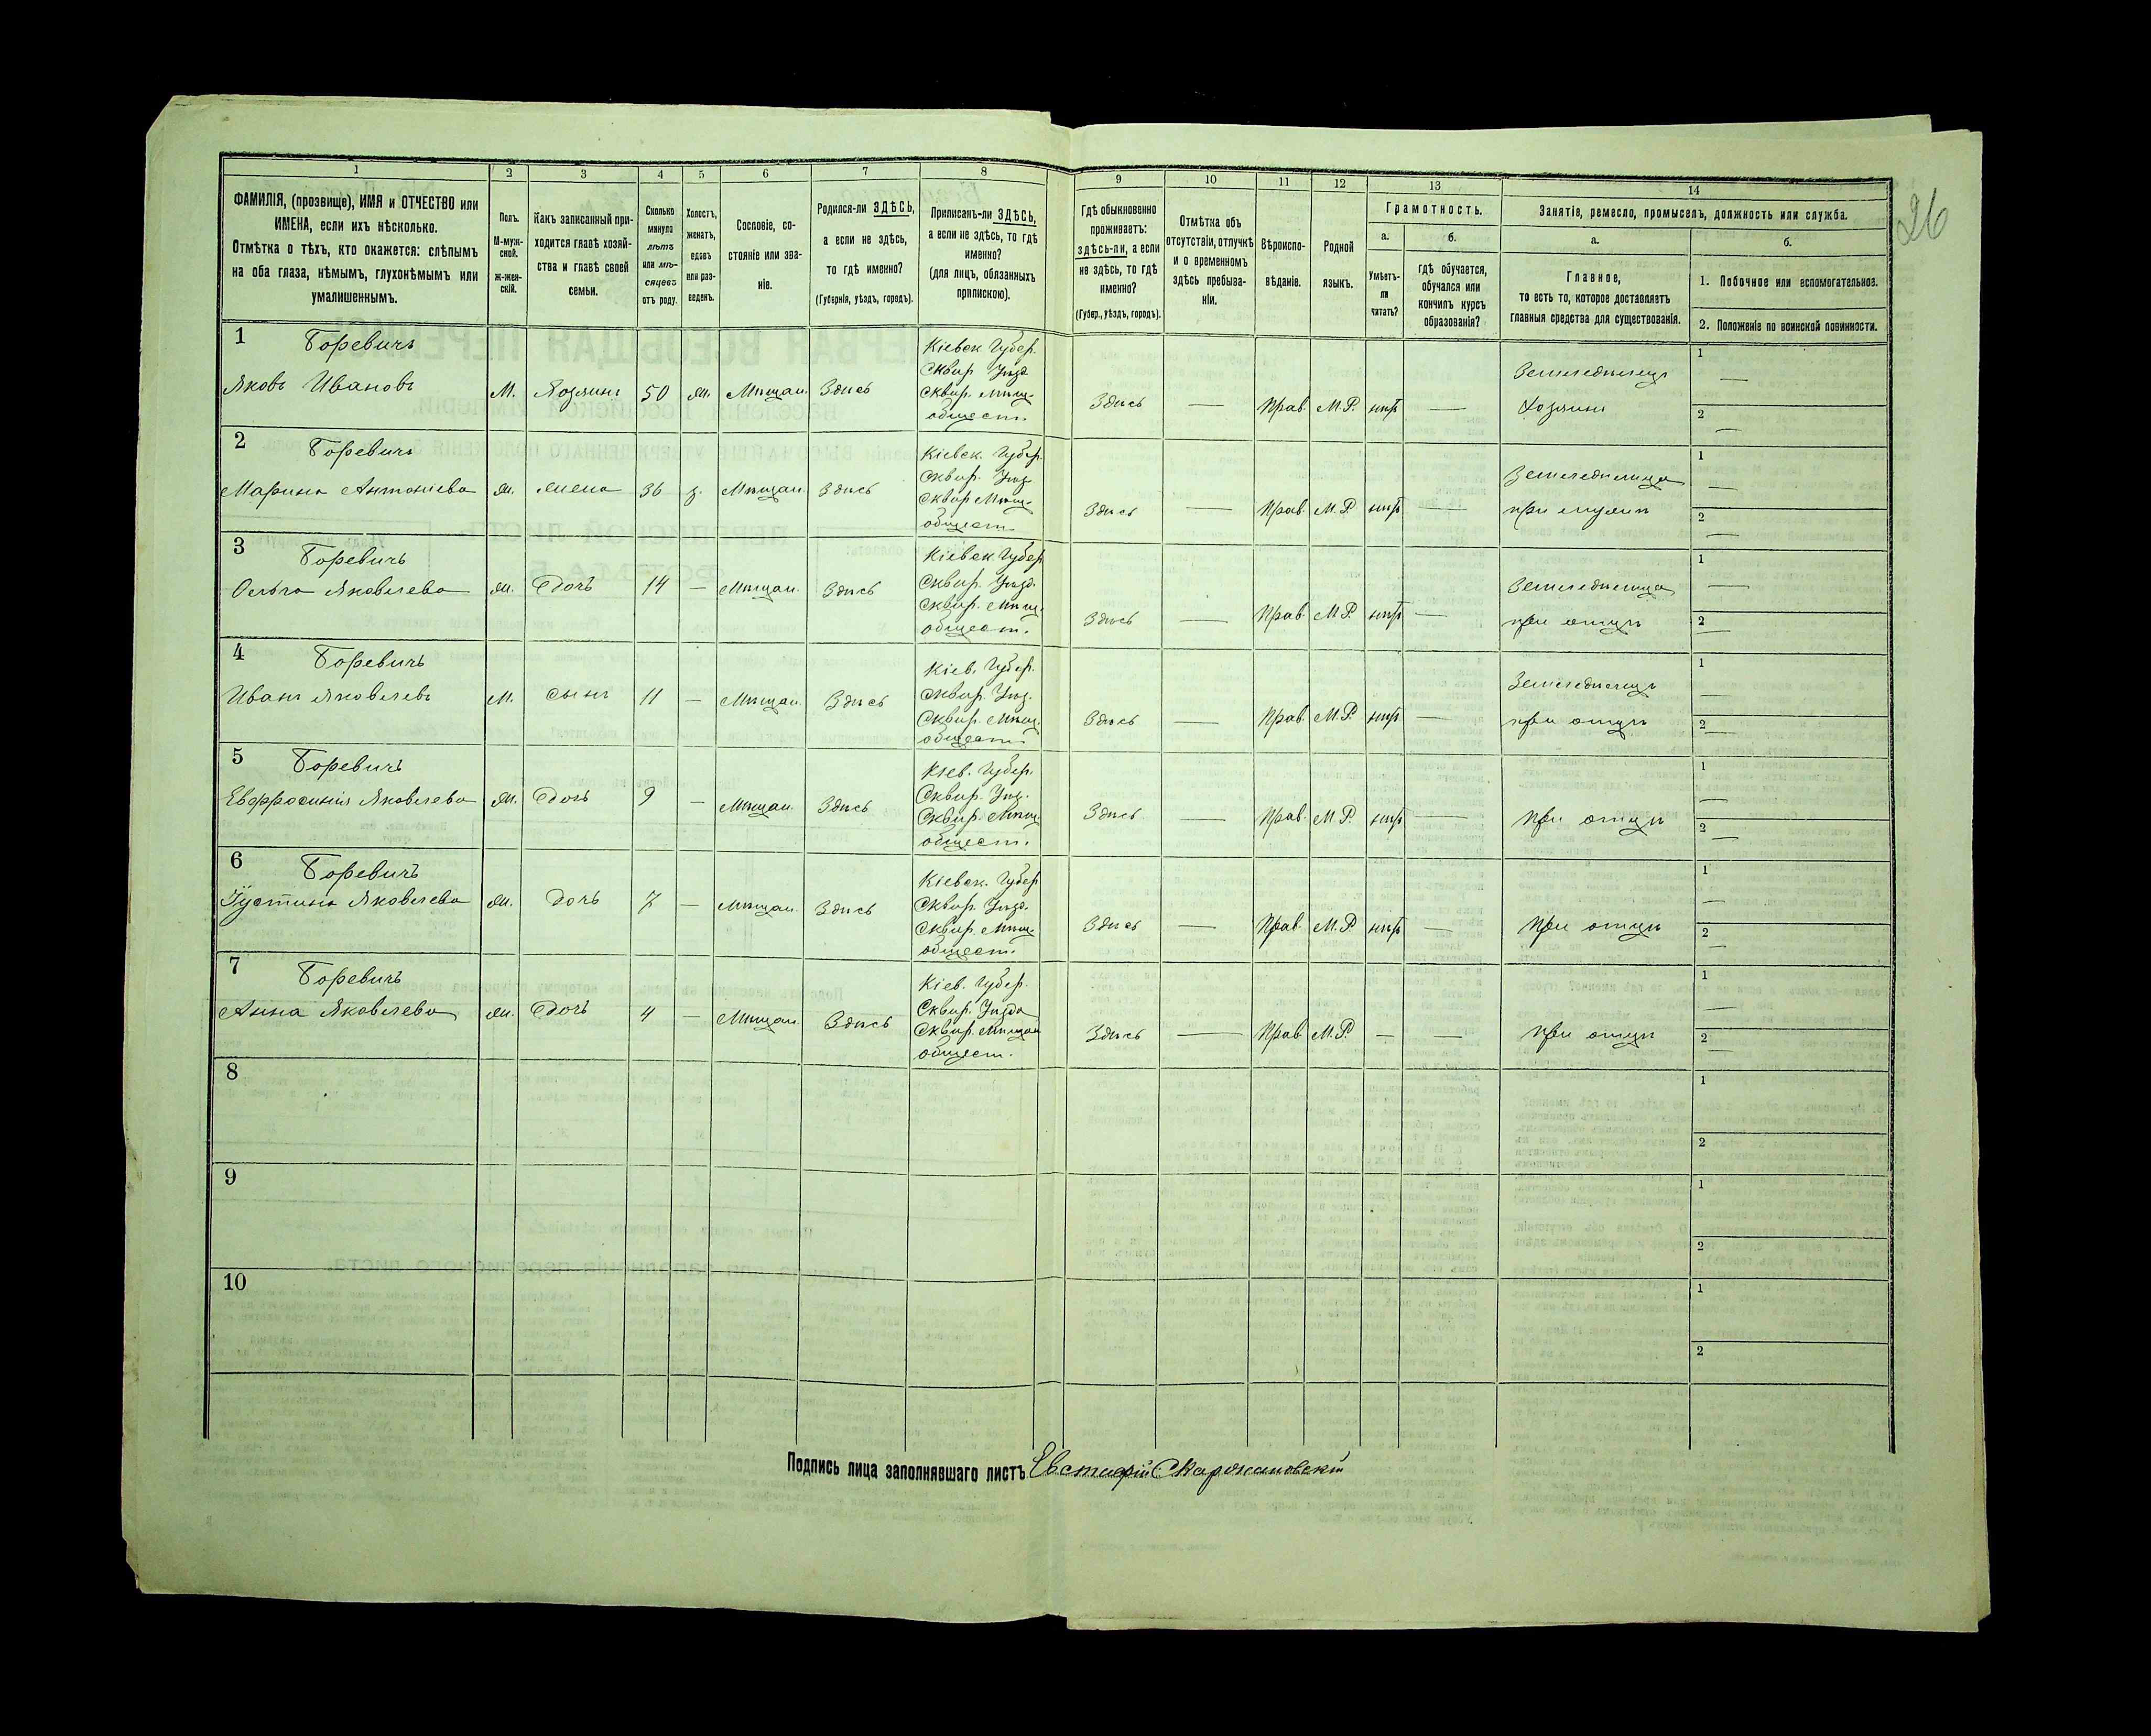 26
1
2
3
4
5
6
7
8
9
10
11
12
13
14
ФАМИЛІЯ, (прозвище), ИМЯ и ОТЧЕСТВО или
ИМЕНА, если ихъ нѣсколько.
Отмѣтка о тѣхъ, кто окажется: слѣпымъ
на оба глаза, нѣмымъ, глухонѣмымъ или
умалишеннымъ.
Полъ.
М-муж-
ской.
ж-жен-
скій.
Какъ записанный при-
ходится главѣ хозяй-
ства и главѣ своей
семьи.
Сколько
минуло
лѣтъ
или мѣ-
сяцевъ
отъ роду.
Холостъ,
женатъ,
вдовъ
или раз-
веденъ.
Сословіе, со-
стояніе или зва-
ніе.
Родился-ли ЗДѢСЬ,
а если не здѣсь,
то гдѣ именно?
(Губернія, уѣздъ, городъ).
Приписанъ-ли ЗДѢСЬ,
а если не здѣсь, то гдѣ
именно?
(для лицъ, обязанныхъ
припискою).
Гдѣ обыкновенно
проживаетъ:
здѣсь-ли, а если
не здѣсь, то гдѣ
именно?
(Губер., уѣздъ, городъ).
Отмѣтка объ
отсутствіи, отлучкѣ
и о временномъ
здѣсь пребыва-
ніи.
Вѣроиспо-
вѣданіе.
Родной
языкъ.
Грамотность.
а.
Умѣетъ-
ли
читать?
б.
гдѣ обучается,
обучался или
кончилъ курсъ
образованія?
Занятіе, ремесло, промыселъ, должность или служба.
а.
Главное,
то есть то, которое доставляетъ
главныя средства для существованія.
б.
1. Побочное или вспомогательное.
2. Положеніе по воинской повинности.
1 Боревичъ
Яковъ Ивановъ М. Хозяинъ 50 ж. Мѣщан. Здѣсь
Кіевск Губер.
Сквир Уѣзд
Сквир. Мѣщ.
общест.
Здѣсь — Прав. М.Р. нѣтъ —
Земледѣлецъ
Хозяинъ
1 —
2 —
2 Боревичъ
Марина Антоніева ж. жена 36 з. Мѣщан. Здѣсь
Кіевск. Губер.
Сквир. Уѣзд
Сквир Мѣщ.
общест.
Здѣсь — Прав. М.Р. нѣтъ —
Земледѣлица
при мужѣ
1 —
2 —
3 Боревичъ
Ольга Яковлева ж. Дочь 14 — Мѣщан. Здѣсь
Кіевск Губер
Сквир. Уѣзд.
Сквир. Мѣщ.
общест.
Здѣсь — Прав. М.Р. нѣтъ —
Земледѣлица
при отцѣ
1 —
2 —
4 Боревичъ
Иванъ Яковлевъ М. Сынъ 11 — Мѣщан. Здѣсь
Кіев. Губер.
Сквир. Уѣз.
Сквир. Мѣщ.
общест.
Здѣсь — Прав. М.Р. нѣтъ —
Земледѣлецъ
при отцѣ
1 —
2 —
5 Боревичъ
Евфросинія Яковлева ж. Дочь 9 — Мѣщан. Здѣсь
Кіев. Губер.
Сквир. Уѣз.
Сквир. Мѣщ
общест.
Здѣсь — Прав. М.Р. нѣтъ —
При отцѣ
1 —
2 —
6 Боревичъ
Іустина Яковлева ж. Дочь 7 — Мѣщан. Здѣсь
Кіевск. Губер
Сквир. Уѣзд.
Сквир. Мѣщ.
общест.
Здѣсь — Прав. М.Р. нѣтъ —
При отцѣ
1 —
2 —
7 Боревичъ
Анна Яковлева ж. Дочь 4 — Мѣщан. Здѣсь
Кіев. Губер.
Сквир. Уѣзда
Сквир. Мѣщан
общест.
Здѣсь — Прав М.Р. — —
При отцѣ
1 —
2 —
8
1
2
9
1
2
10
1
2
Подпись лица заполнявшаго листъ Евстафій